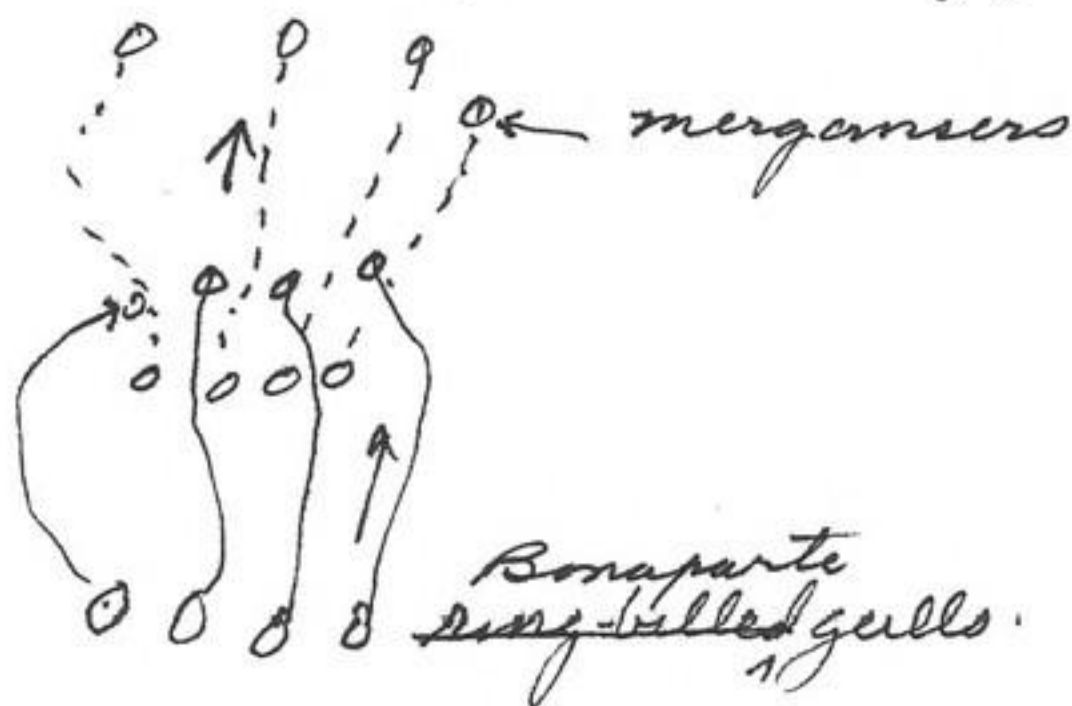 mergansers
Bonaparte
ring-billed gulls.